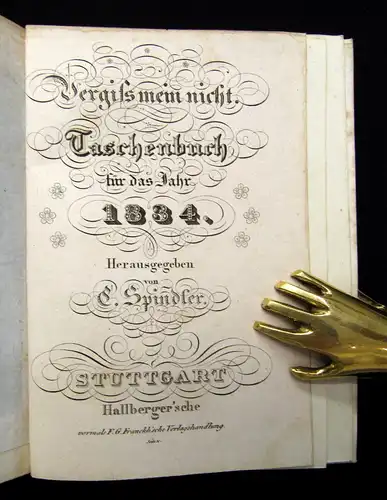 Vergiſs mein nicht.
Taschenbuch
für das Jahr
1834.
Herausgegeben
von
C. Spindler.
STUTTGART
Hallberger'sche
vormals F. G. Franckh'sche Verlagshandlung.